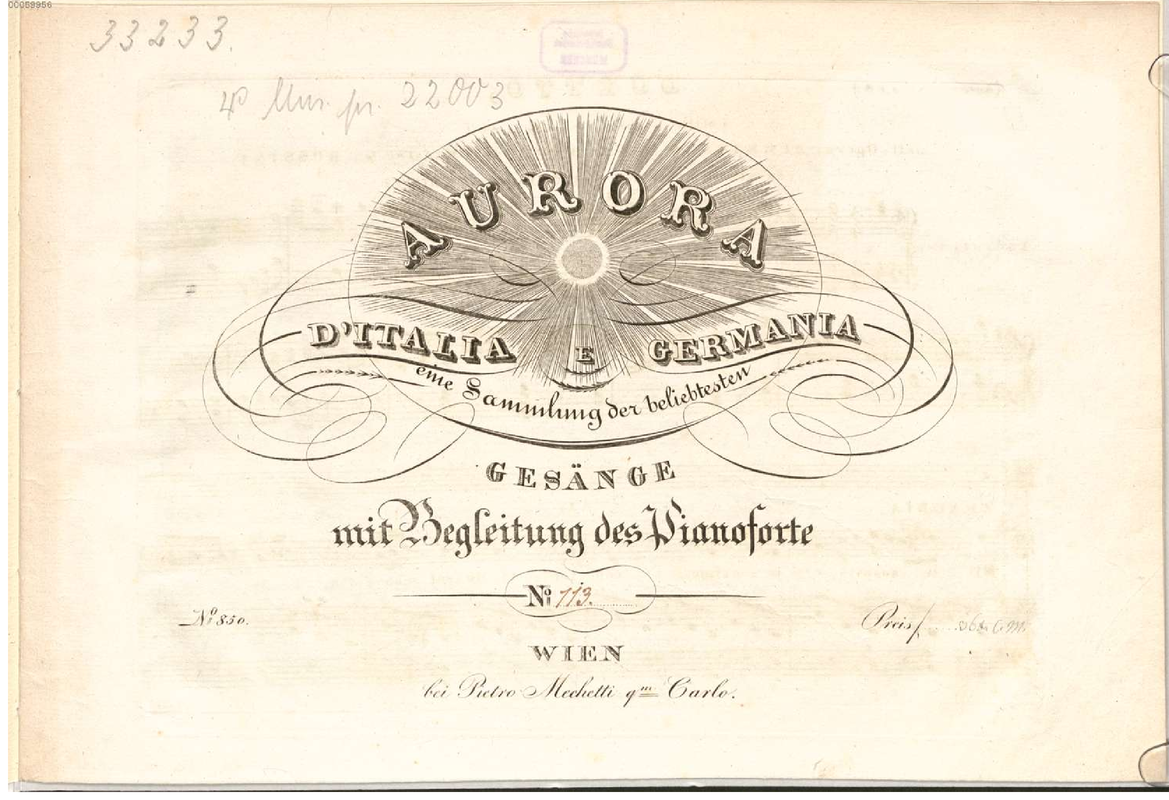 00059956
33233.
4° Mus. pr. 22003
AURORA
D'ITALIA E GERMANIA
eine Sammlung der beliebtesten
GESÄNGE
mit Begleitung des Pianoforte
No: 113.
No 850.
Preis
WIEN
bei Pietro Mechetti qm Carlo.